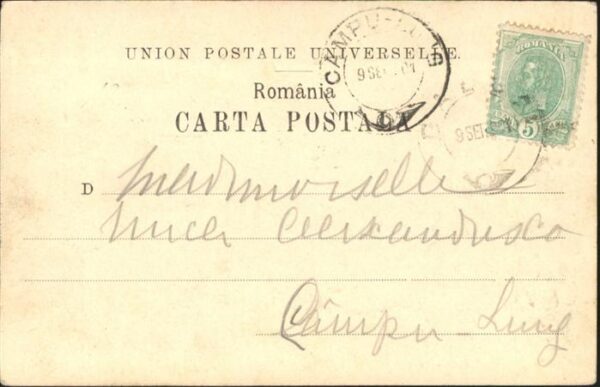 UNION POSTALE UNIVERSELLE.
România
CARTA POSTALA
CÂMPU-LUNG
9 SEP
ROMANIA
5
9 SEP
D Mademoiselle
Alexandresco
Câmpu-Lung